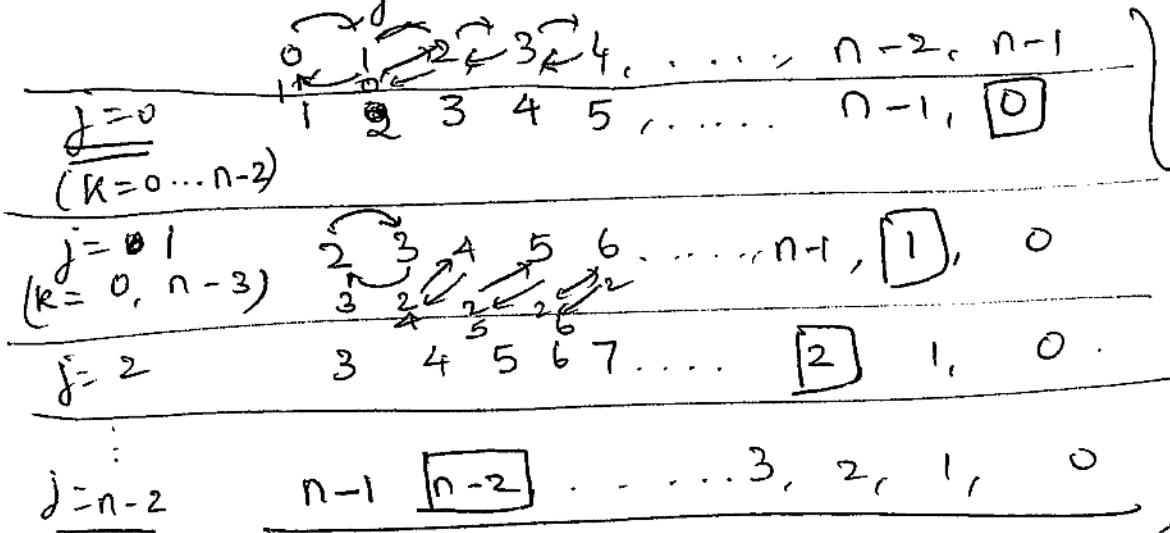 0 1 2 3 4, . . . . . , n-2, n-1
1 0
j=0 1 2 3 4 5 , . . . . . . n-1, 0
(k=0...n-2)
j= 1 2 3 4 5 6 . . . . . . , n-1, 1, 0
(k= 0, n-3) 3 2 2 2 2
4 5 6
j= 2 3 4 5 6 7 . . . . . 2 1, 0 .
:
j=n-2 n-1 n-2 . . . . . . 3, 2, 1, 0